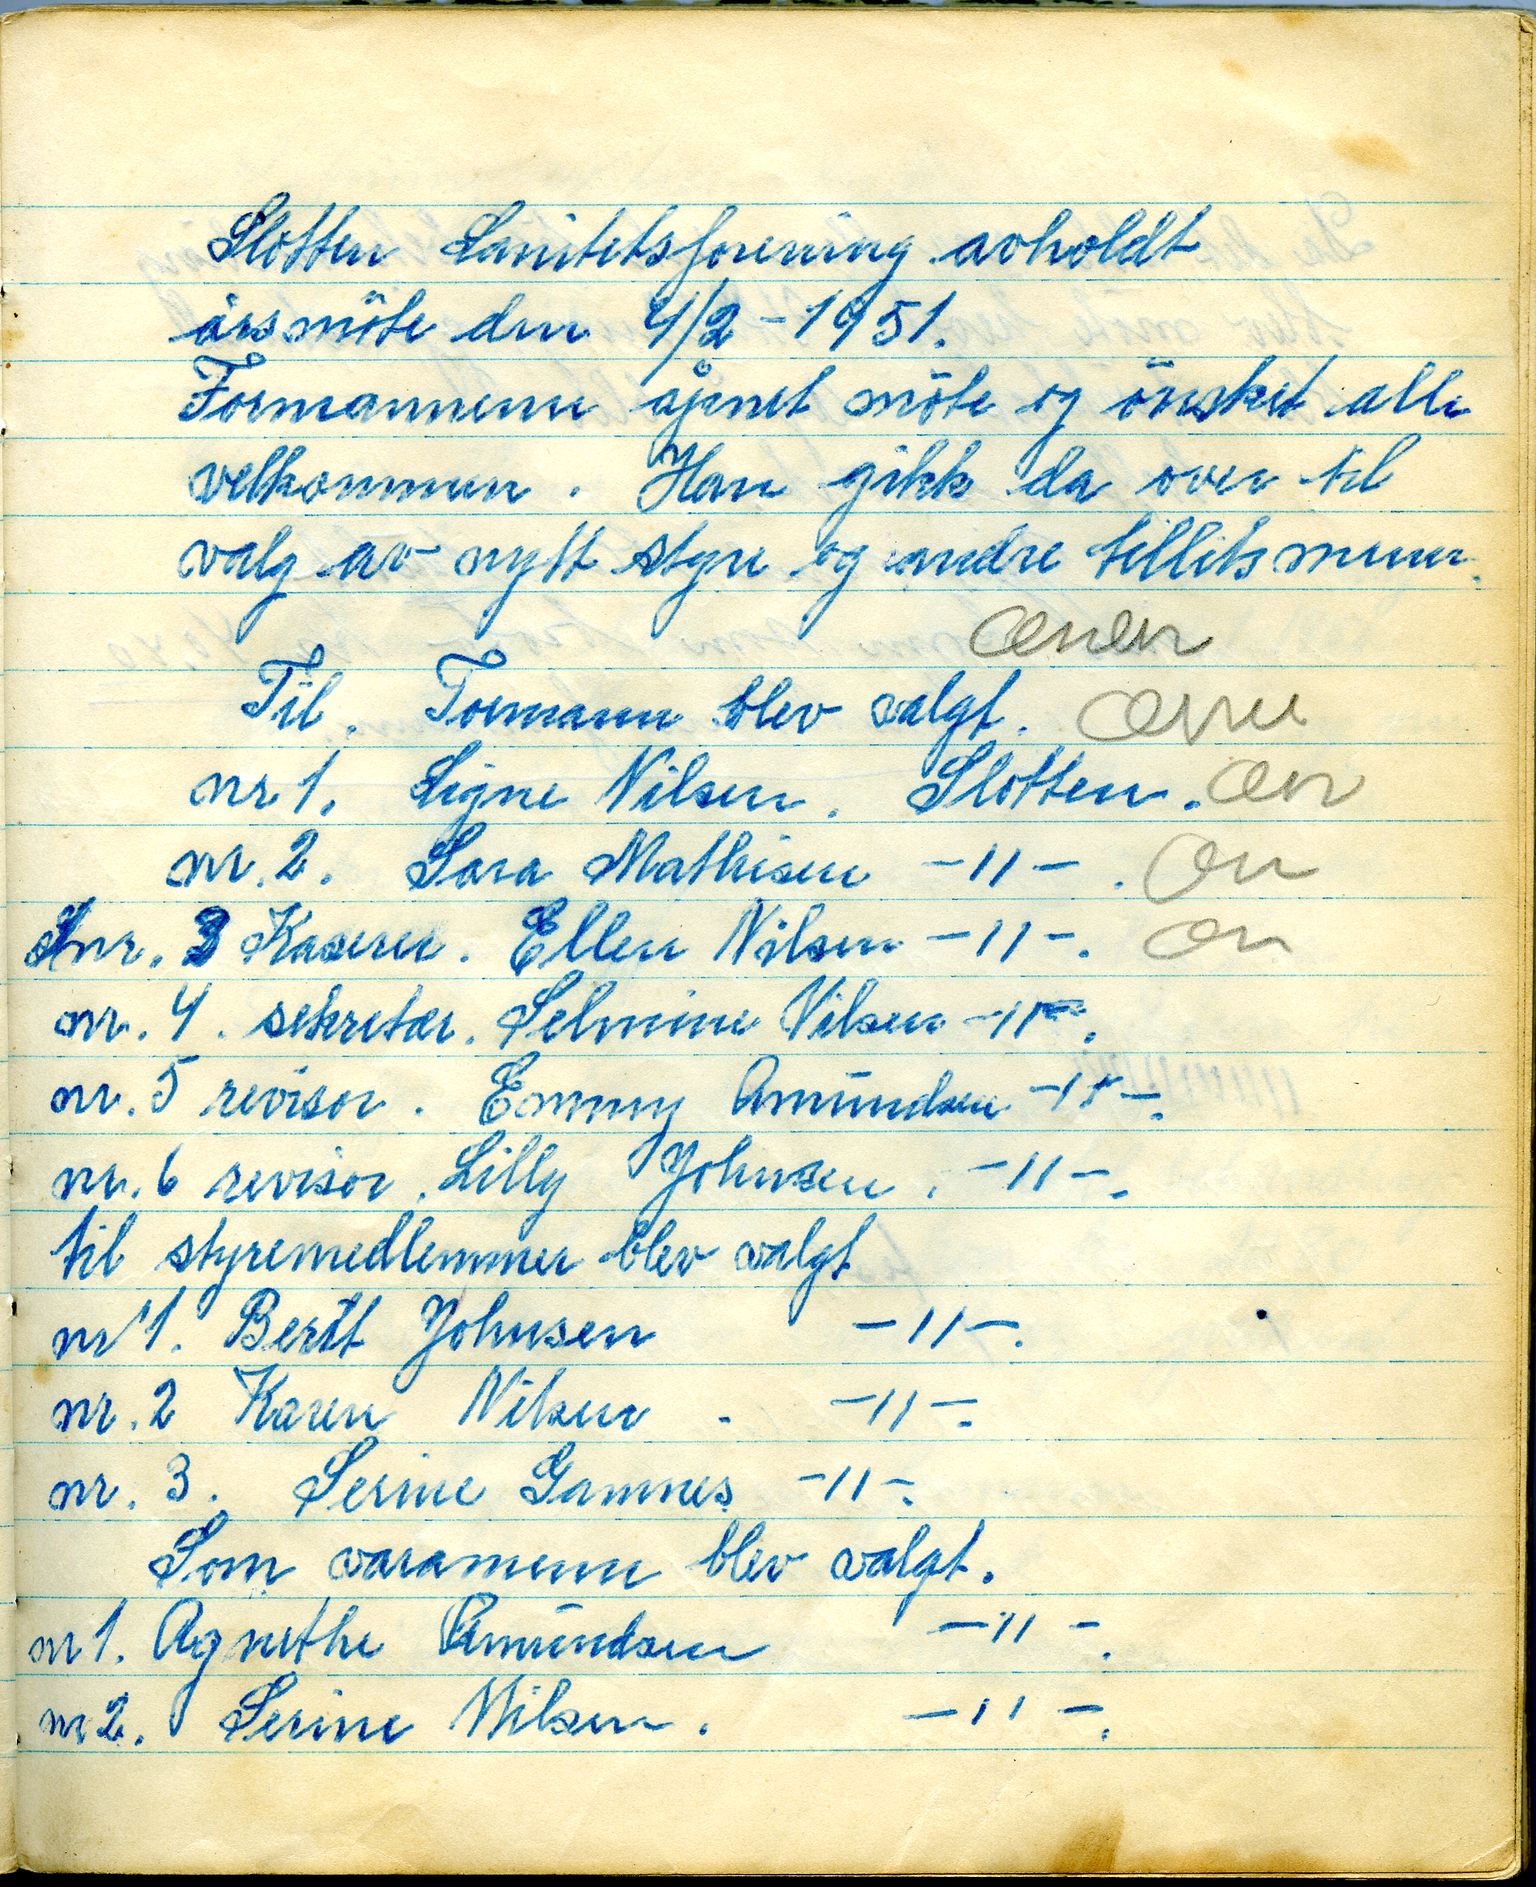 Slotten Sanitetsforening avholdt
årsmöte den 4/2 - 1951.
Formannenn åpnet möte og önsket alle
velkommen. Han gikk da over til
valg av nytt styre og andre tillitsmenn.
Til. Formann blev valgt.
nr 1. Signe Nilsen. Slotten.
nr. 2. Sara Mathisen -11-.
nr. 3 Kaserer. Ellen Nilsen -11-.
nr. 4. sekretær. Selmine Nilsen -11-.
nr. 5 revisor. Emmy Amundsen -11-.
nr. 6 revisor. Lilly Johnsen. -11-.
til styremedlemmer blev valgt
nr 1. Berit Johnsen -11-.
nr. 2 Karen Nilsen. -11-.
nr. 3. Serine Gamnes -11-.
Som varamenn blev valgt.
nr 1. Agnethe Amundsen -11-.
nr 2. Serine Nilsen. -11-.